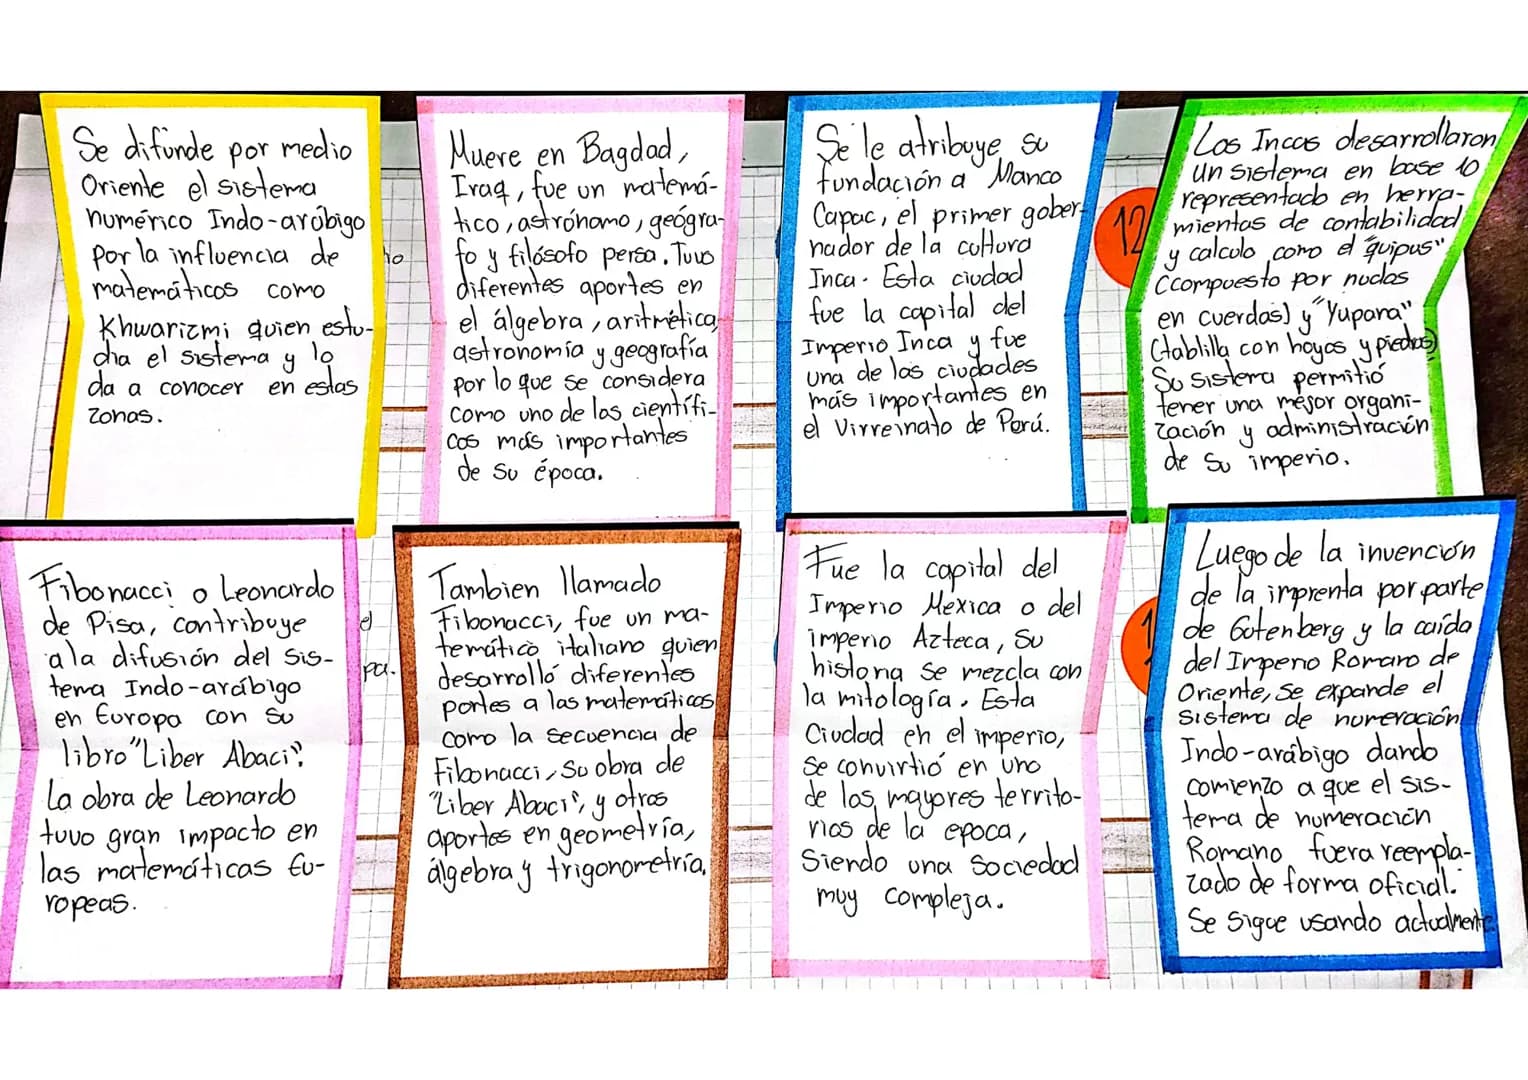 Se difunde por medio
Oriente el sistema
numérico Indo-arábigo
por la influencia de
matemáticos como
Khwarizmi quien estu-
dia el sistema y lo
da a conocer en estas
zonas.
Muere en Bagdad,
Iraq, fue un matemá-
tico, astrónomo, geógra-
fo y filósofo persa. Tuvo
diferentes aportes en
el álgebra, aritmética,
astronomía y geografía
por lo que se considera
como uno de los científi-
cos más importantes
de su época.
Se le atribuye su
fundación a Manco
Capac, el primer gober-
nador de la cultura
Inca. Esta ciudad
fue la capital del
Imperio Inca y fue
una de las ciudades
más importantes en
el Virreinato de Perú.
12
Los Incas desarrollaron
un sistema en base 10
representado en herra-
mientas de contabilidad
y calculo como el "quipus"
(compuesto por nudos
en cuerdas) y "Yupana"
(tablilla con hoyos y piedras)
Su sistema permitió
tener una mejor organi-
zación y administración
de su imperio.
Fibonacci o Leonardo
de Pisa, contribuye
a la difusión del sis-
tema Indo-arábigo
en Europa con su
libro "Liber Abaci".
La obra de Leonardo
tuvo gran impacto en
las matemáticas Eu-
ropeas.
el
pa.
Tambien llamado
Fibonacci, fue un ma-
temático italiano quien
desarrolló diferentes
portes a las matemáticas
como la secuencia de
Fibonacci, su obra de
"Liber Abaci", y otros
aportes en geometría,
álgebra y trigonometría.
Fue la capital del
Imperio Mexica o del
imperio Azteca, su
historia se mezcla con
la mitología. Esta
Ciudad en el imperio,
se convirtió en uno
de los mayores territo-
rios de la epoca,
Siendo una Sociedad
muy compleja.
Luego de la invención
de la imprenta por parte
de Gutenberg y la caída
del Imperio Romano de
Oriente, se expande el
sistema de numeración
Indo-arábigo dando
comienzo a que el sis-
tema de numeración
Romano fuera reempla-
zado de forma oficial.
Se sigue usando actualmente